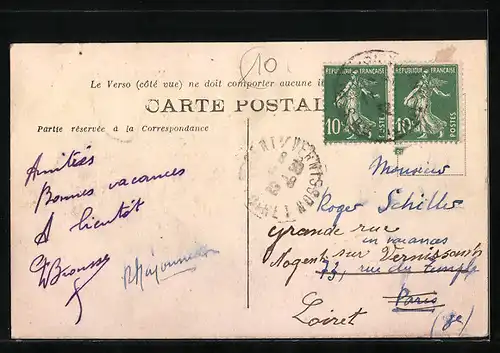 10
Le Verso (côté vue) ne doit comporter aucune
CARTE POSTAL
Partie réservée à la Correspondance
RÉPUBLIQUE FRANÇAISE
10 POSTES
RÉPUBLIQUE FRANÇAISE
10 POSTES
Amitiés
Bonnes vacances
A bientôt
Monsieur
Roger Schiller
grande rue
en vacances
Nogent sur Vernisson
73, rue du temple
Paris
Loiret